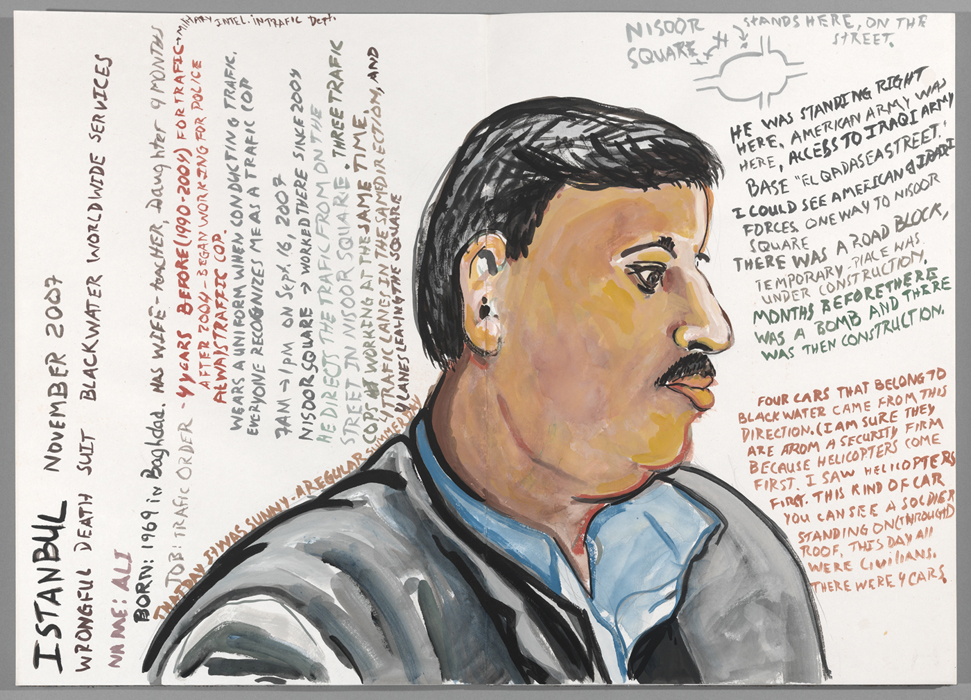 ISTANBUL NOVEMBER 2007
WRONGFUL DEATH SUIT BLACKWATER WORLDWIDE SERVICES
NAME: ALI
BORN: 1969 in Baghdad. HAS WIFE-teacher, Daughter 9 MONTHS
JOB: TRAFIC ORDER - 4 YEARS BEFORE (1990-2004) FOR TRAFIC - MILITARY INTEL. in TRAFIC DEPT.
AFTER 2004 - BEGAN WORKING FOR POLICE
ALWAYS TRAFFIC COP.
WEARS A UNIFORM WHEN CONDUCTING TRAFIC,
EVERYONE RECOGNIZES ME AS A TRAFIC COP
7AM → 1PM ON Sept. 16, 2007
NISOOR SQUARE → WORKED THERE SINCE 2004
HE DIRECTS THE TRAFIC FROM ON THE
STREET IN NISOOR SQUARE. THREE TRAFIC
COPS WORKING AT THE SAME TIME,
4 TRAFIC LANES IN THE SAME DIRECTION, AND
4 LANES LEAVING THE SQUARE
THAT DAY IT WAS SUNNY - A REGULAR SUMMER DAY
NISOOR
SQUARE
STANDS HERE, ON THE
STREET.
HE WAS STANDING RIGHT
HERE, AMERICAN ARMY WAS
HERE, ACCESS TO IRAQI ARMY
BASE "EL QADASEA STREET."
I COULD SEE AMERICAN & IRAQI
FORCES. ONE WAY TO NISOOR
SQUARE
THERE WAS A ROAD BLOCK,
TEMPORARY-PLACE WAS
UNDER CONSTRUCTION,
MONTHS BEFORE THERE
WAS A BOMB AND THERE
WAS THEN CONSTRUCTION.
FOUR CARS THAT BELONG TO
BLACKWATER CAME FROM THIS
DIRECTION. (I AM SURE THEY
ARE FROM A SECURITY FIRM
BECAUSE HELICOPTERS COME
FIRST. I SAW HELICOPTERS
FIRST. THIS KIND OF CAR
YOU CAN SEE A SOLDIER
STANDING ON (THROUGH)
ROOF, THIS DAY All
WERE CIVILIANS.
THERE WERE 4 CARS.